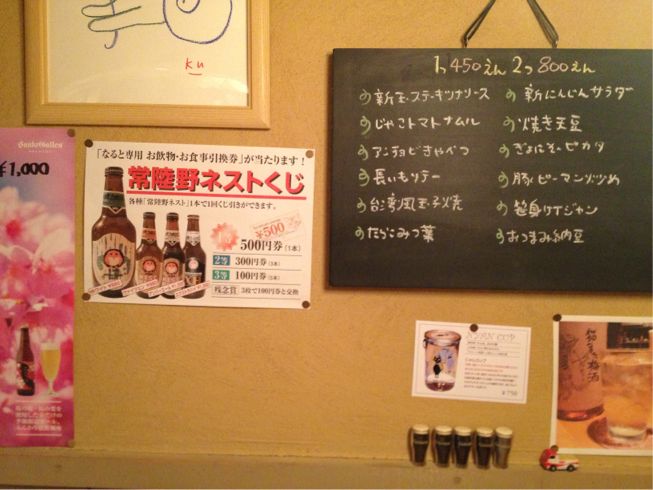 ku
1つ450えん 2つ800えん
新玉・ステーキツナソース
新にんじんサラダ
じゃこトマトナムル
焼き空豆
アンチョビきゃべつ
ぎょにそーピカタ
長いもソテー
豚ピーマンツメ
台湾風玉子焼
たらこみつ葉
おつまみ納豆
¥1,000
「なると専用 お飲物・お食事引換券」が当たります!
常陸野ネストくじ
各種「常陸野ネスト」1本で1回くじ引きができます。
¥500
500円券(1本)
2等 300円券(3本)
3等 100円券(5本)
残念賞 3枚で100円券と交換
¥750
梅酒